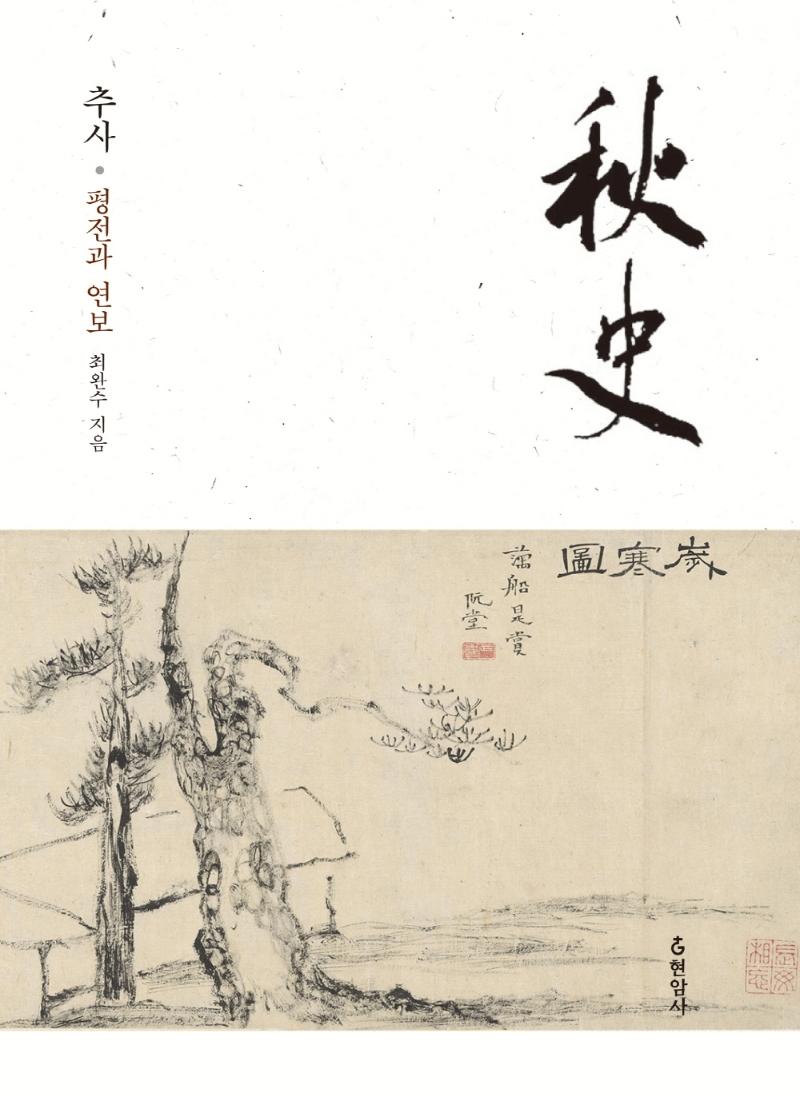 추사 · 평전과 연보 최완수 지음
秋史
歲寒圖
藕船是賞
阮堂
長毋相忘
현암사